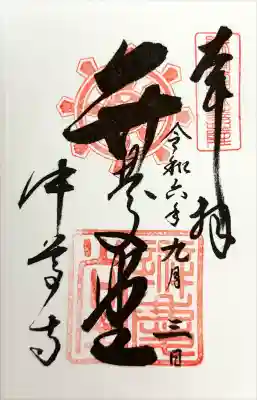 奉拝
令和六年九月三日
弁慶堂
中尊寺